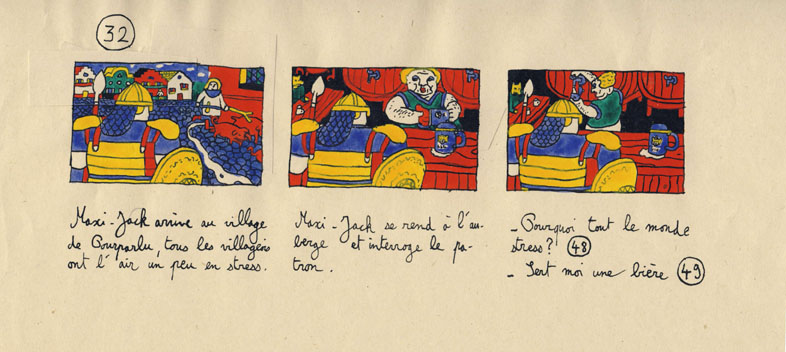 32
Maxi-Jack arrive au village
de Pourparlu, tous les villageois
ont l'air un peu en stress.
Maxi-Jack se rend à l'au-
berge et interroge le pa-
tron.
- Pourquoi tout le monde
stress? 48
- Sert moi une bière 49